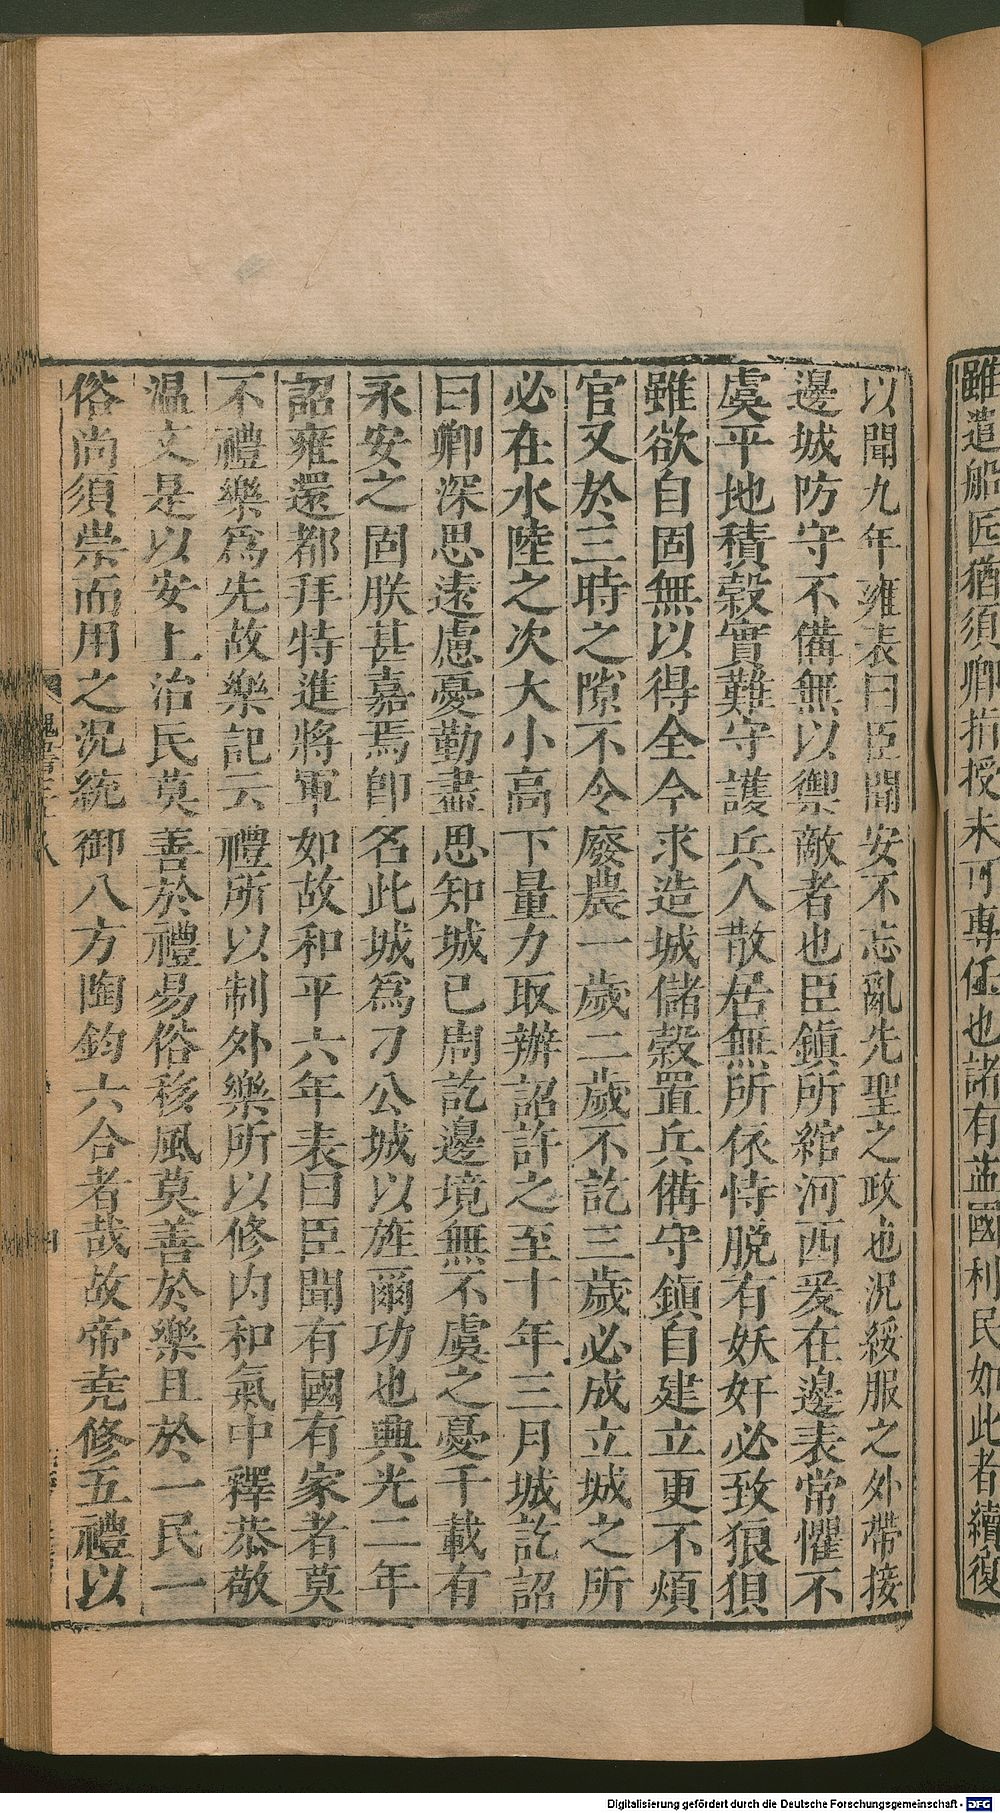 雖遣船匠猶須卿指授未可專任也諸有益國利民如此者續復
以聞九年雍表曰臣聞安不忘亂先聖之政也況綏服之外帶接
邊城防守不備無以禦敵者也臣鎮所綰河西爰在邊表常懼不
虞平地積穀實難守護兵人散居無所依恃脫有妖奸必致狼狽
雖欲自固無以得全今求造城儲穀置兵備守鎮自建立更不煩
官又於三時之隙不令廢農一歲二歲不訖三歲必成立城之所
必在水陸之次大小高下量力取辦詔許之至十年三月城訖詔
曰卿深思遠慮憂勤盡思知城已周訖邊境無不虞之憂千載有
永安之固朕甚嘉焉即名此城為刁公城以旌爾功也興光二年
詔雍還都拜特進將軍如故和平六年表曰臣聞有國有家者莫
不禮樂為先故樂記云禮所以制外樂所以修內和氣中釋恭敬
溫文是以安上治民莫善於禮易俗移風莫善於樂且於一民一
俗尚須崇而用之況統御八方陶鈞六合者哉故帝堯修五禮以
Digitalisierung gefördert durch die Deutsche Forschungsgemeinschaft - DFG